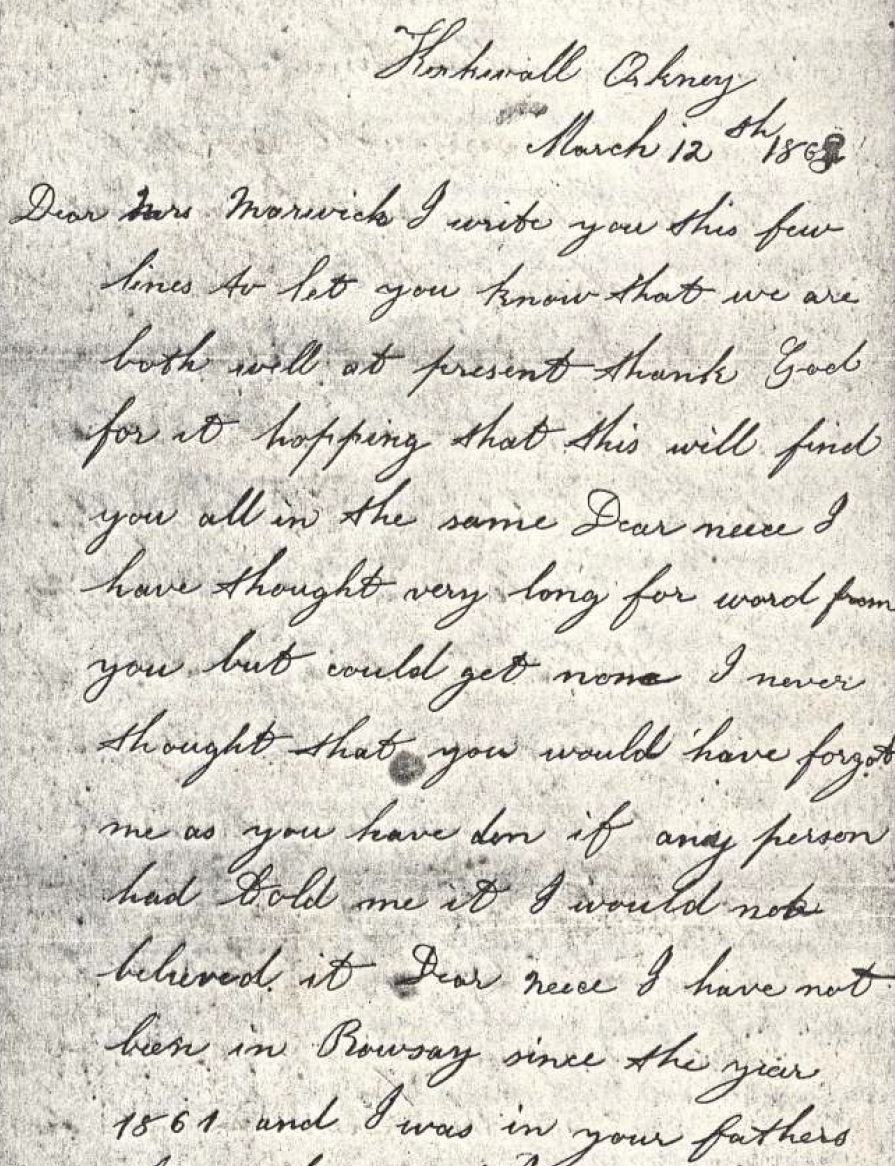 Kirkwall Orkney
March 12th 186
Dear Mrs Marwick I write you this few
lines to let you know that we are
both well at present thank God
for it hopping that this will find
you all in the same Dear neece I
have thought very long for word from
you but could get none I never
thought that you would have forgot
me as you have don if any person
had told me it I would not
believed it Dear neece I have not
been in Rowsay since the year
1861 and I was in your fathers